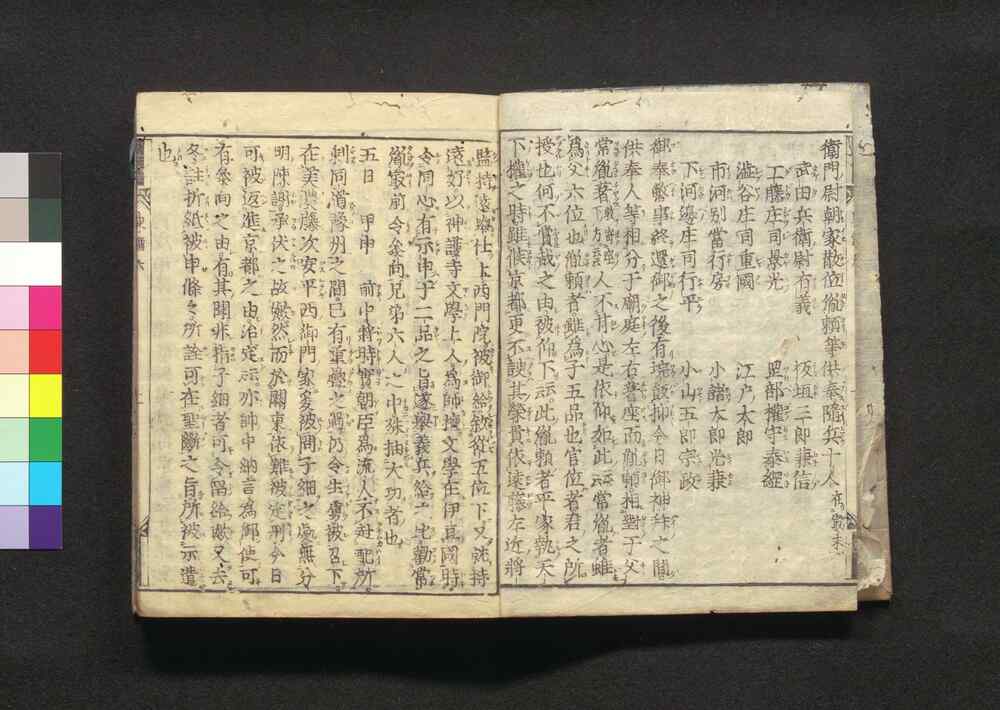 衛門尉朝家散位胤頼等供奉隨兵十人在最末
武田兵衛尉有義　板垣三郎兼信
工藤庄司景光　岡部權守泰綱
澁谷庄司重國　江戸太郎
市河別當行房　小諸太郎光兼
下河邊庄司行平　小山五郎宗政
御奉幣事終還御之後有垸飯抑今日御神拜之間
供奉人等相分于廟庭左右著座而胤頼相對于父
常胤著座人不甘心是依仰如此云常胤者雖
為父六位也胤頼者雖為子五品也官位者君之所
授也何不賞哉之由被仰下云此胤頼者平家執天
下權之時雖候京都更不諛其榮貫依遠藤左近將
監持遠擧仕上西門院被御給敍從五位下又就持
遠好以神護寺文學上人為師檀文學在伊豆國時
令同心有示申于二品之旨遂擧義兵給之比勸常
胤最前令參向兄弟六人之中殊抽大功者也
五日　甲申　前中將時實朝臣為流人不赴配所
剩同道豫州之間已有重疊之過仍令生虜被召下
在美濃藤次安平西御門家爰被問子細之處無分
明陳謝承伏之故歟然而於關東依難被定刑今日
可被返進京都之由治定云亦帥中納言為御使可
有參向之由有其聞非指子細者可令留給歟又去
冬註折紙被申條々所詮可在聖斷之旨所被示遣
也